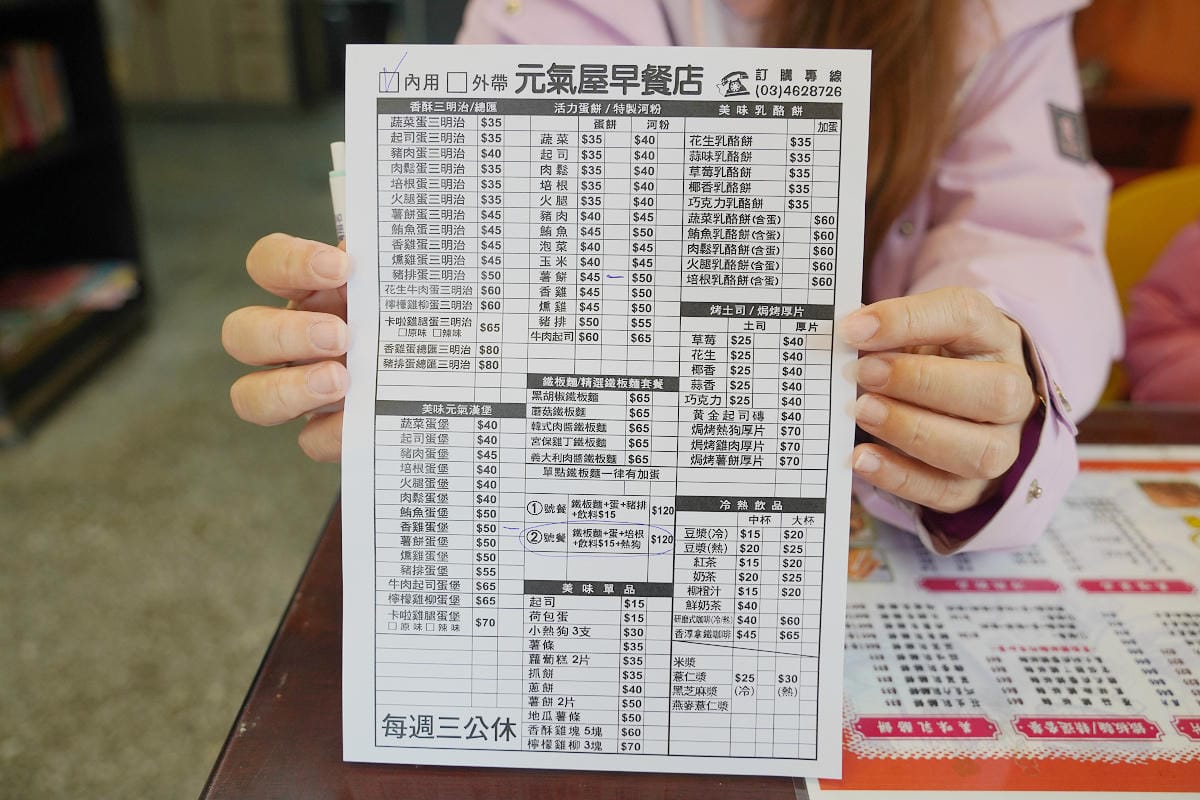 內用 外帶 元氣屋早餐店 訂購專線
(03)4628726
香酥三明治/總匯
蔬菜蛋三明治 $35
起司蛋三明治 $35
豬肉蛋三明治 $40
肉鬆蛋三明治 $35
培根蛋三明治 $35
火腿蛋三明治 $35
薯餅蛋三明治 $45
鮪魚蛋三明治 $45
香雞蛋三明治 $45
燻雞蛋三明治 $45
豬排蛋三明治 $50
花生牛肉蛋三明治 $60
檸檬雞柳蛋三明治 $60
卡啦雞腿蛋三明治 $65
原味 辣味
香雞蛋總匯三明治 $80
豬排蛋總匯三明治 $80
美味元氣漢堡
蔬菜蛋堡 $40
起司蛋堡 $40
豬肉蛋堡 $45
培根蛋堡 $40
火腿蛋堡 $40
肉鬆蛋堡 $40
鮪魚蛋堡 $50
香雞蛋堡 $50
薯餅蛋堡 $50
燻雞蛋堡 $50
豬排蛋堡 $55
牛肉起司蛋堡 $65
檸檬雞柳蛋堡 $65
卡啦雞腿蛋堡 $70
原味 辣味
每週三公休
活力蛋餅/特製河粉
蛋餅 河粉
蔬菜 $35 $40
起司 $35 $40
肉鬆 $35 $40
培根 $35 $40
火腿 $35 $40
豬肉 $40 $45
鮪魚 $45 $50
泡菜 $40 $45
玉米 $40 $45
薯餅 $45 $50
香雞 $45 $50
燻雞 $45 $50
豬排 $50 $55
牛肉起司 $60 $65
鐵板麵/精選鐵板麵套餐
黑胡椒鐵板麵 $65
蘑菇鐵板麵 $65
韓式肉醬鐵板麵 $65
宮保雞丁鐵板麵 $65
義大利肉醬鐵板麵 $65
單點鐵板麵一律有加蛋
①號餐 鐵板麵+蛋+豬排 $120
+飲料$15
②號餐 鐵板麵+蛋+培根 $120
+飲料$15+熱狗
美味單品
起司 $15
荷包蛋 $15
小熱狗3支 $30
薯條 $35
蘿蔔糕2片 $35
抓餅 $35
蔥餅 $40
薯餅2片 $50
地瓜薯條 $50
香酥雞塊5塊 $60
檸檬雞柳3塊 $70
美味乳酪餅
加蛋
花生乳酪餅 $35
蒜味乳酪餅 $35
草莓乳酪餅 $35
椰香乳酪餅 $35
巧克力乳酪餅 $35
蔬菜乳酪餅(含蛋) $60
鮪魚乳酪餅(含蛋) $60
肉鬆乳酪餅(含蛋) $60
火腿乳酪餅(含蛋) $60
培根乳酪餅(含蛋) $60
烤土司/焗烤厚片
土司 厚片
草莓 $25 $40
花生 $25 $40
椰香 $25 $40
蒜香 $25 $40
巧克力 $25 $40
黃金起司磚 $40
焗烤熱狗厚片 $70
焗烤雞肉厚片 $70
焗烤薯餅厚片 $70
冷熱飲品
中杯 大杯
豆漿(冷) $15 $20
豆漿(熱) $20 $25
紅茶 $15 $20
奶茶 $20 $25
柳橙汁 $15 $20
鮮奶茶 $40
研磨式咖啡(冷/熱) $40 $60
香淳拿鐵咖啡 $45 $65
米漿
薏仁漿 $25 $30
黑芝麻漿 (冷) (熱)
燕麥薏仁漿